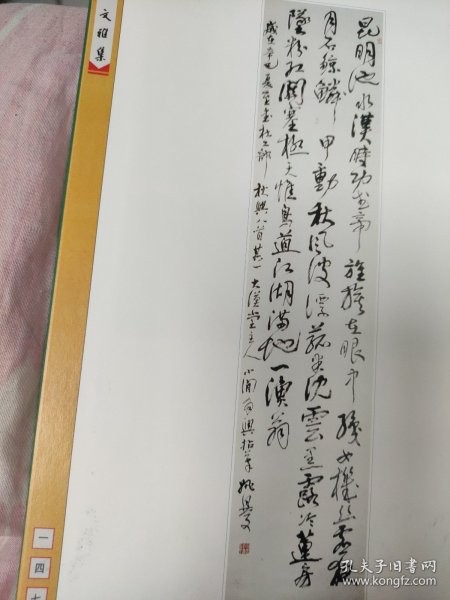 文雅集
昆明池水漢時功武帝旌旗在眼中織女機絲虛夜
月石鯨鱗甲動秋風波漂菰米沈雲黑露冷蓮房
墜粉紅關塞極天惟鳥道江湖滿地一漁翁
歲在辛巳夏至書杜工部秋興八首其一大漢堂主人小閒有興拈筆姚
一四七
孔夫子旧书网
book.kongfz.com